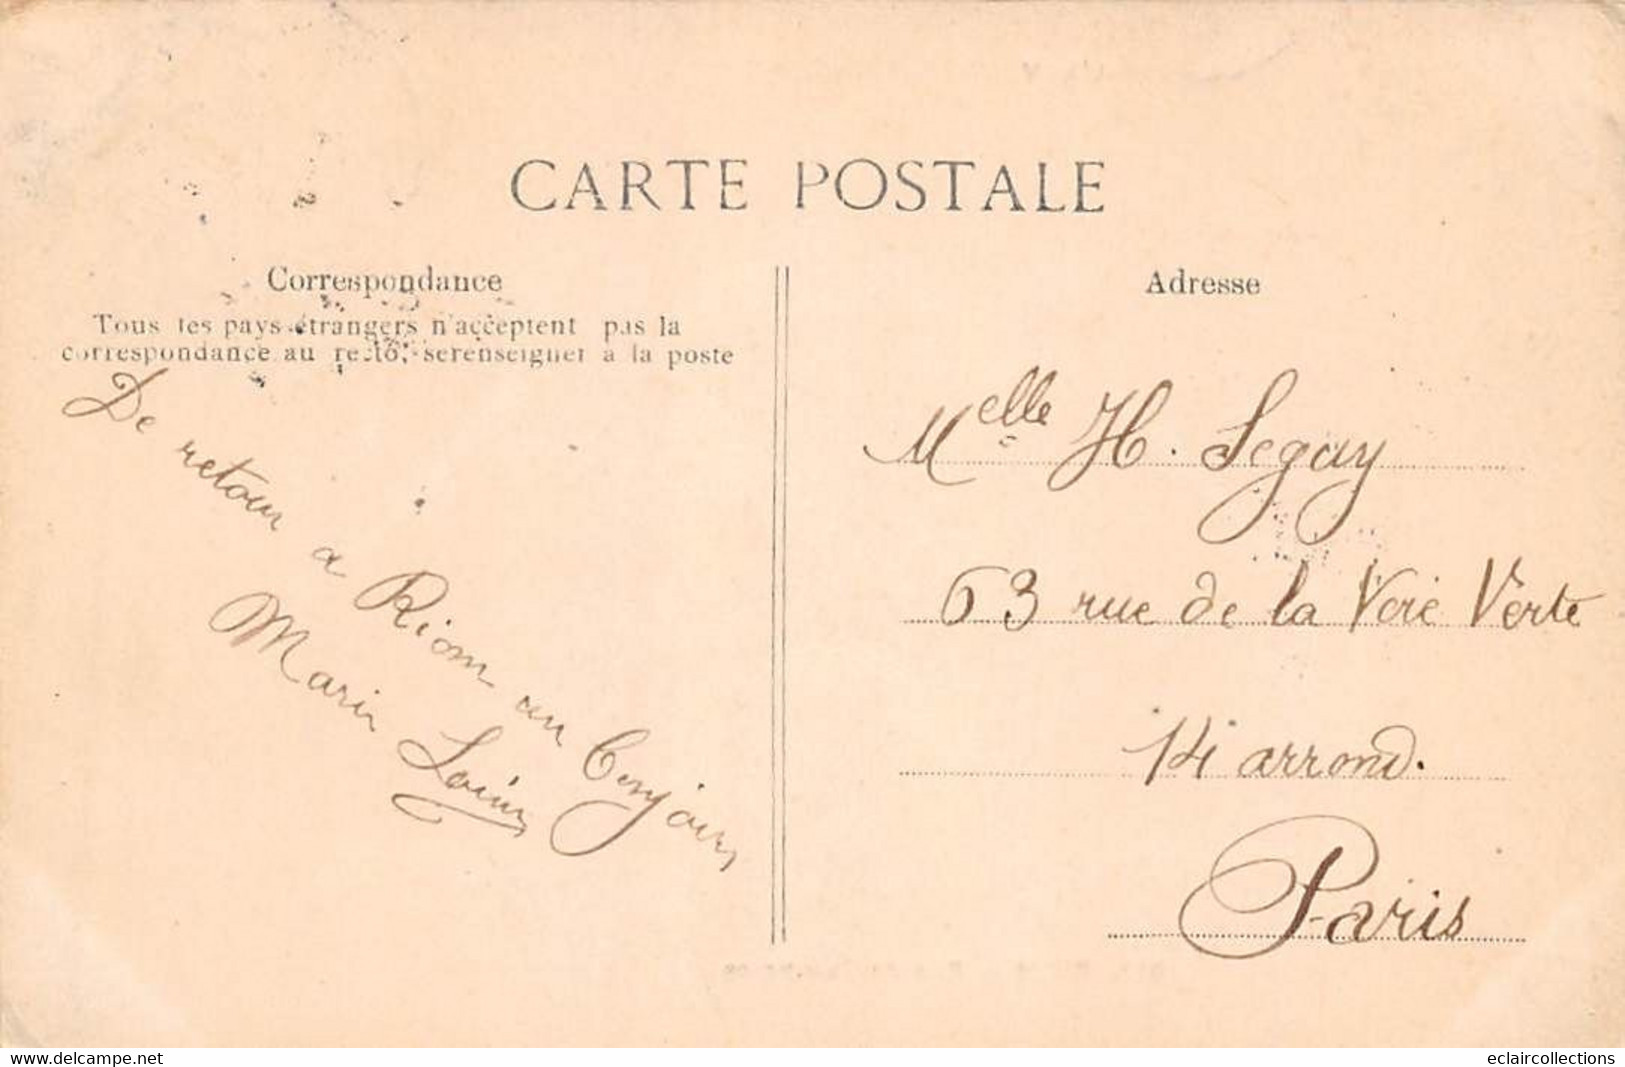 CARTE POSTALE
Correspondance
Tous les pays étrangers n'acceptent pas la
correspondance au recto, se renseigner à la poste
De retour a Riom un bonjour
Marin
Adresse
Melle H. Segay
63 rue de la Voie Verte
14i arrond.
Paris
delcampe.net
eclaircollections